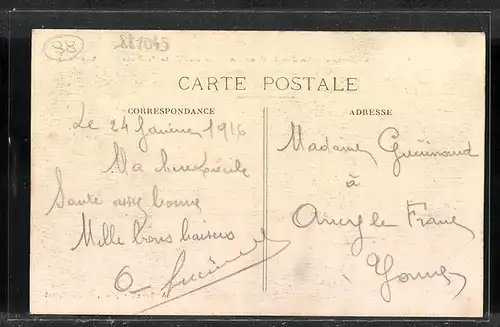 88
887045
CARTE POSTALE
CORRESPONDANCE
ADRESSE
Le 24 Janvier 1916
Ma
Santé assez bonne
Mille bons baisers
Madame
à
Ancy le Franc
Yonne